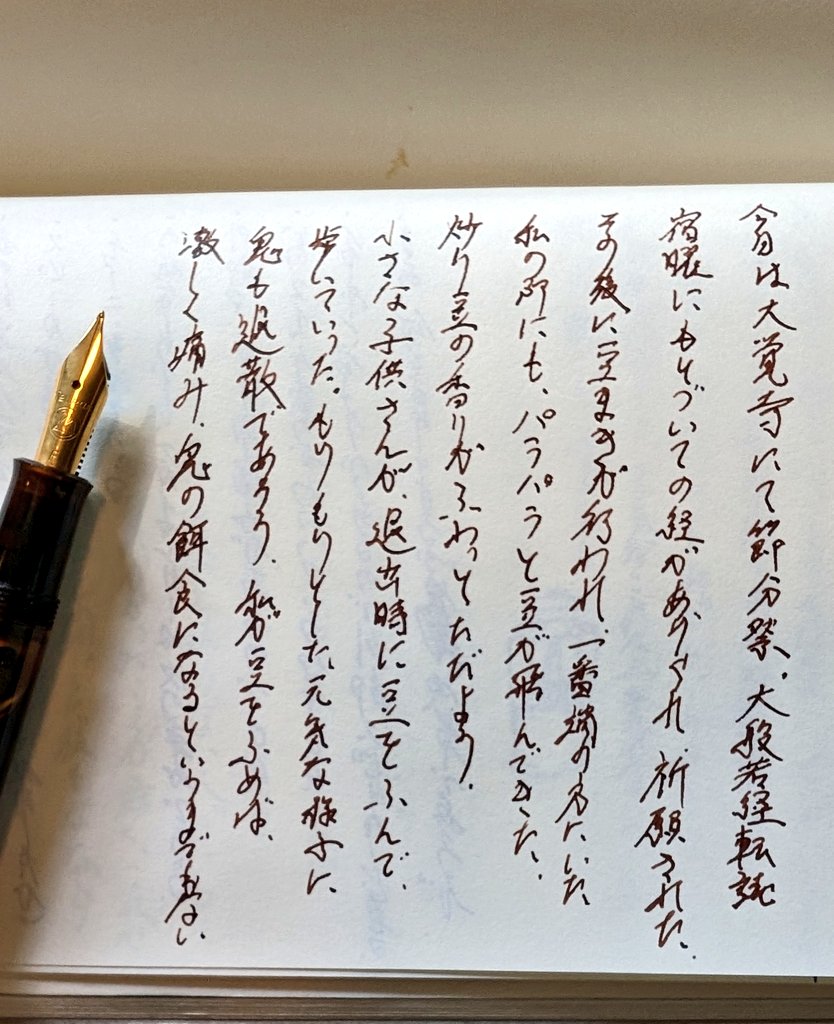 今日は大覚寺にて節分祭。大般若経転読
宿曜にもとづいての経があげられ、祈願された。
その後に豆まきが行われ、一番端の方にいた
私の所にも、パラパラと豆が飛んできた。
炒り豆の香りがふわっとただよう。
小さな子供さんが、退出時に豆をふんで、
歩いていった。もりもりとした元気な様子に、
鬼も退散であろう。私が豆をふめば、
激しく痛み、鬼の餌食になるというまでもない